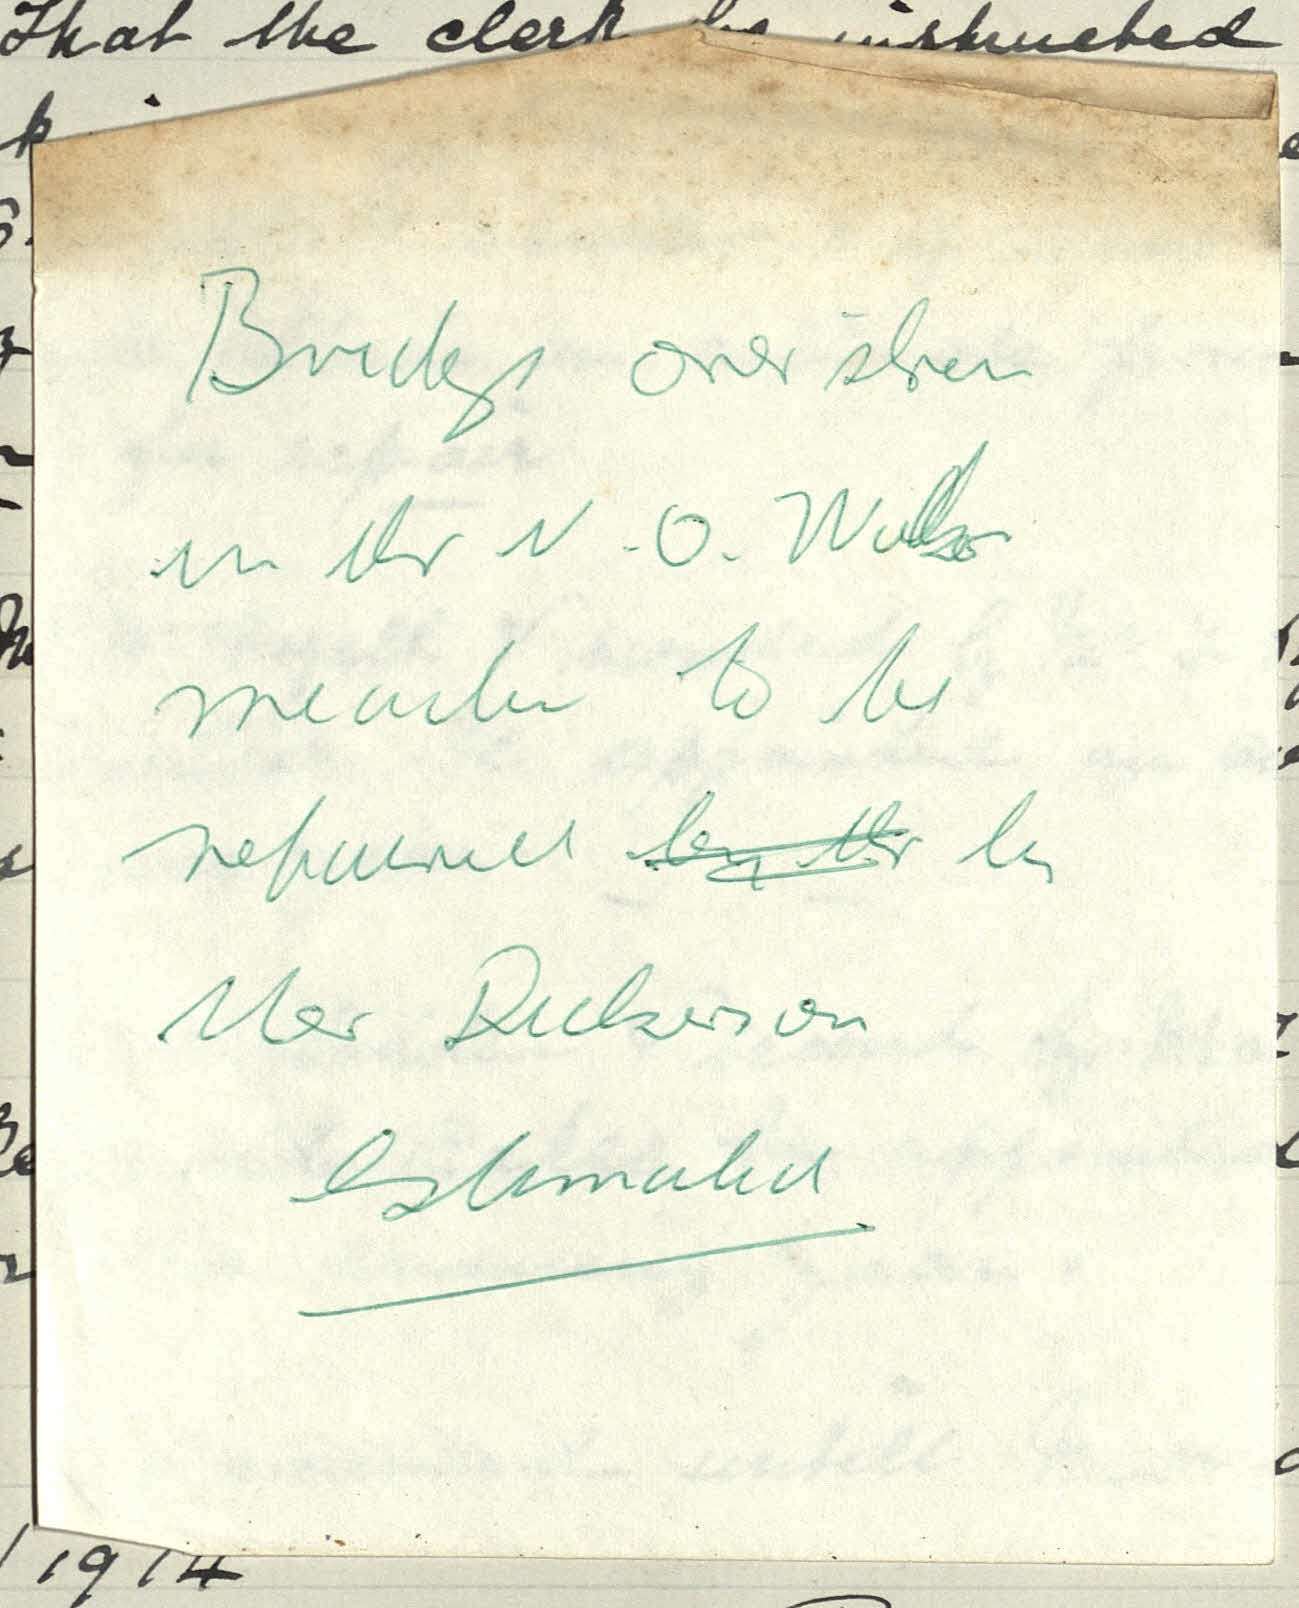 That the clerk be instructed
Bridge over drain
in the N. O. Walker
meadow to be
repaired by the by
Mer Dickerson
Estimated
1914